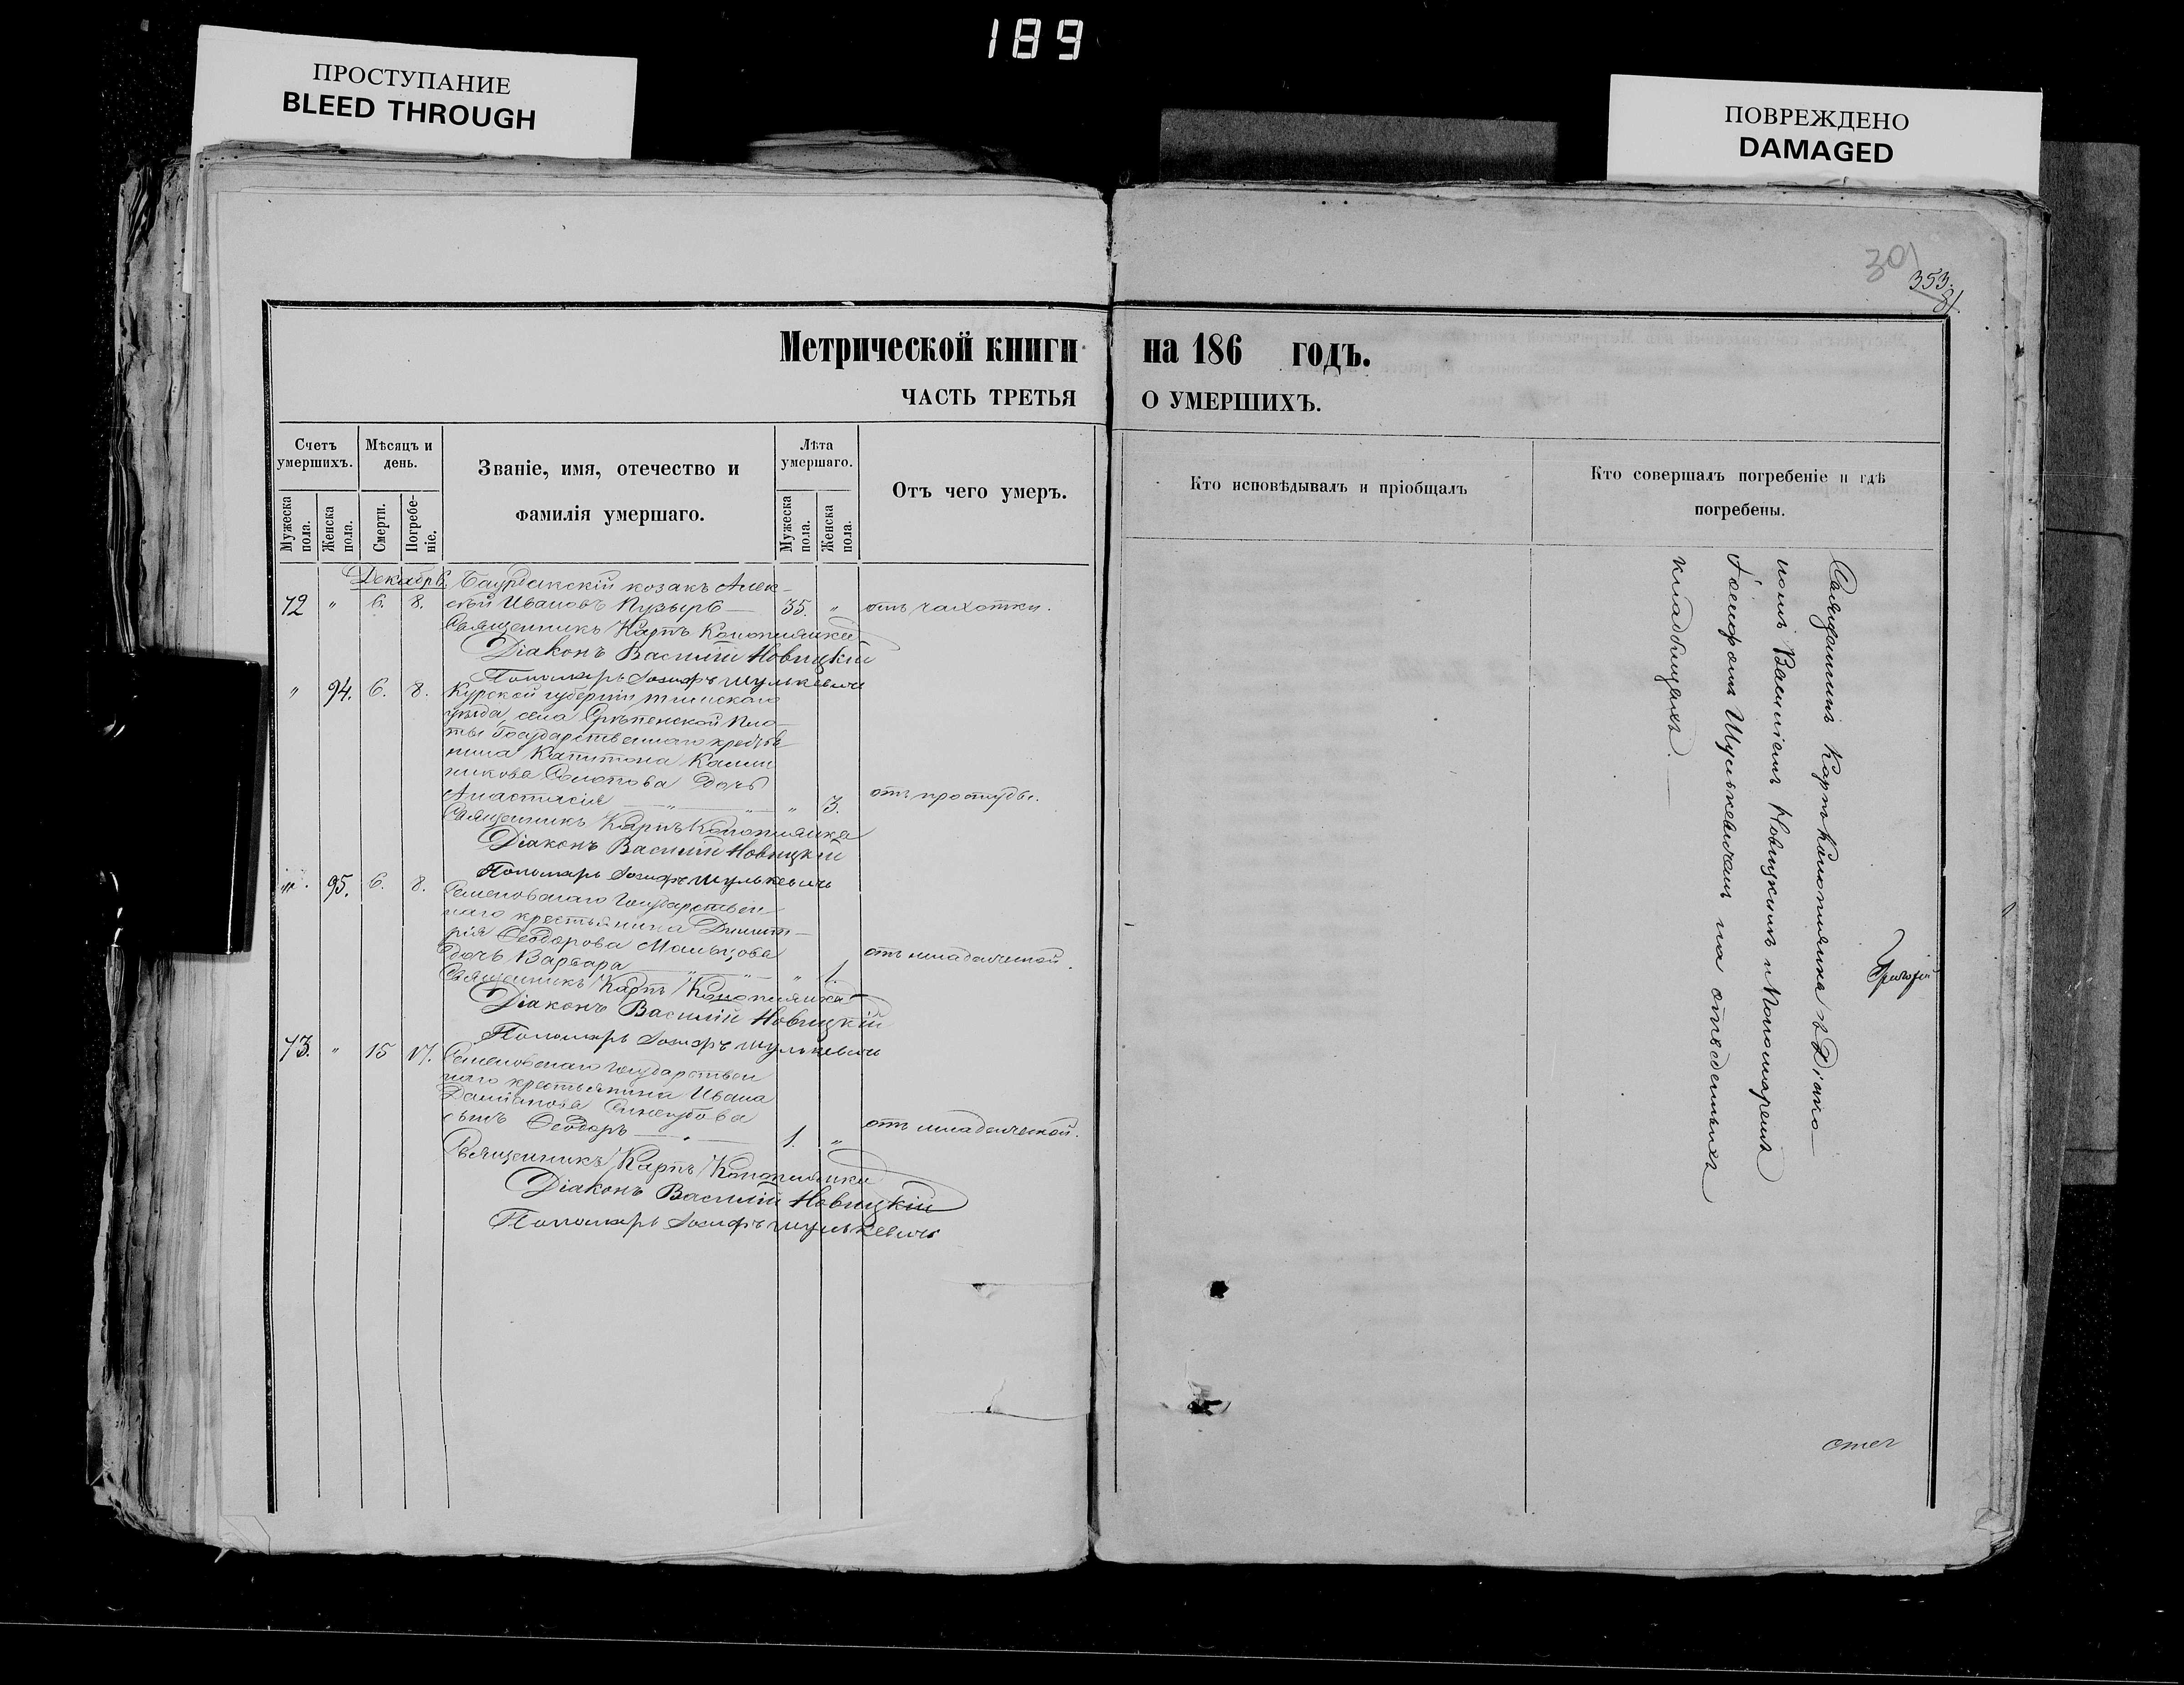 189
ПРОСТУПАНИЕ
BLEED THROUGH
ПОВРЕЖДЕНО
DAMAGED
301
353.
81.
Метрической книги на 186 годъ.
ЧАСТЬ ТРЕТЬЯ О УМЕРШИХЪ.
Счетъ умершихъ.
Мужеска пола.
Женска пола.
Мѣсяцъ и день.
Смерти.
Погребеніе.
Званіе, имя, отечество и
фамилія умершаго.
Лѣта умершаго.
Мужеска пола.
Женска пола.
Отъ чего умеръ.
Кто исповѣдывалъ и пріобщалъ
Кто совершалъ погребеніе и гдѣ
погребены.
Декабрь. козакъ Алек-
72 " 6. 8. сѣй Ивановъ Пузырь — 35. " отъ чахотки.
Священникъ Карпъ Конопляпка
Діаконъ Василій Новицкій
Пономарь Іосифъ Шулькевичъ
" 94. 6. 8. Курской губерніи тимскаго
уѣзда, села Пло-
ты Государственнаго крестья
нина Капитона
дочь
Анастасія — " — " — " 3. отъ простуды.
Священникъ Карпъ Конопляпка
Діаконъ Василій Новицкій
Пономарь Іосифъ Шулькевичъ
" 95. 6. 8. Семеновскаго Государствен
наго крестьянина Димит-
рія Ѳеодорова Мальцова
дочь Варвара — " — " — " 1. отъ младенческой.
Священникъ Карпъ Конопляпка
Діаконъ Василій Новицкій
Пономарь Іосифъ Шулькевичъ
73. " 15 17. Семеновскаго Государствен
наго крестьянина Ивана
Даміанова
сынъ Ѳеодоръ — " — 1. " отъ младенческой.
Священникъ Карпъ Конопляпка
Діаконъ Василій Новицкій
Пономарь Іосифъ Шулькевичъ
Священникъ Карпъ Конопляпка з Діако-
номъ Василіемъ Новицкимъ и Пономаремъ
Іосифомъ Шулькевичемъ на отведенныхъ
кладбищахъ. —